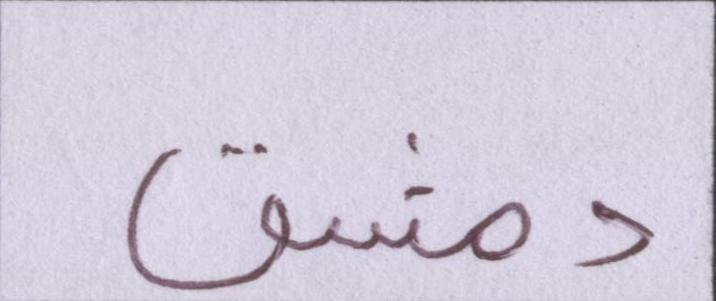 دمشق